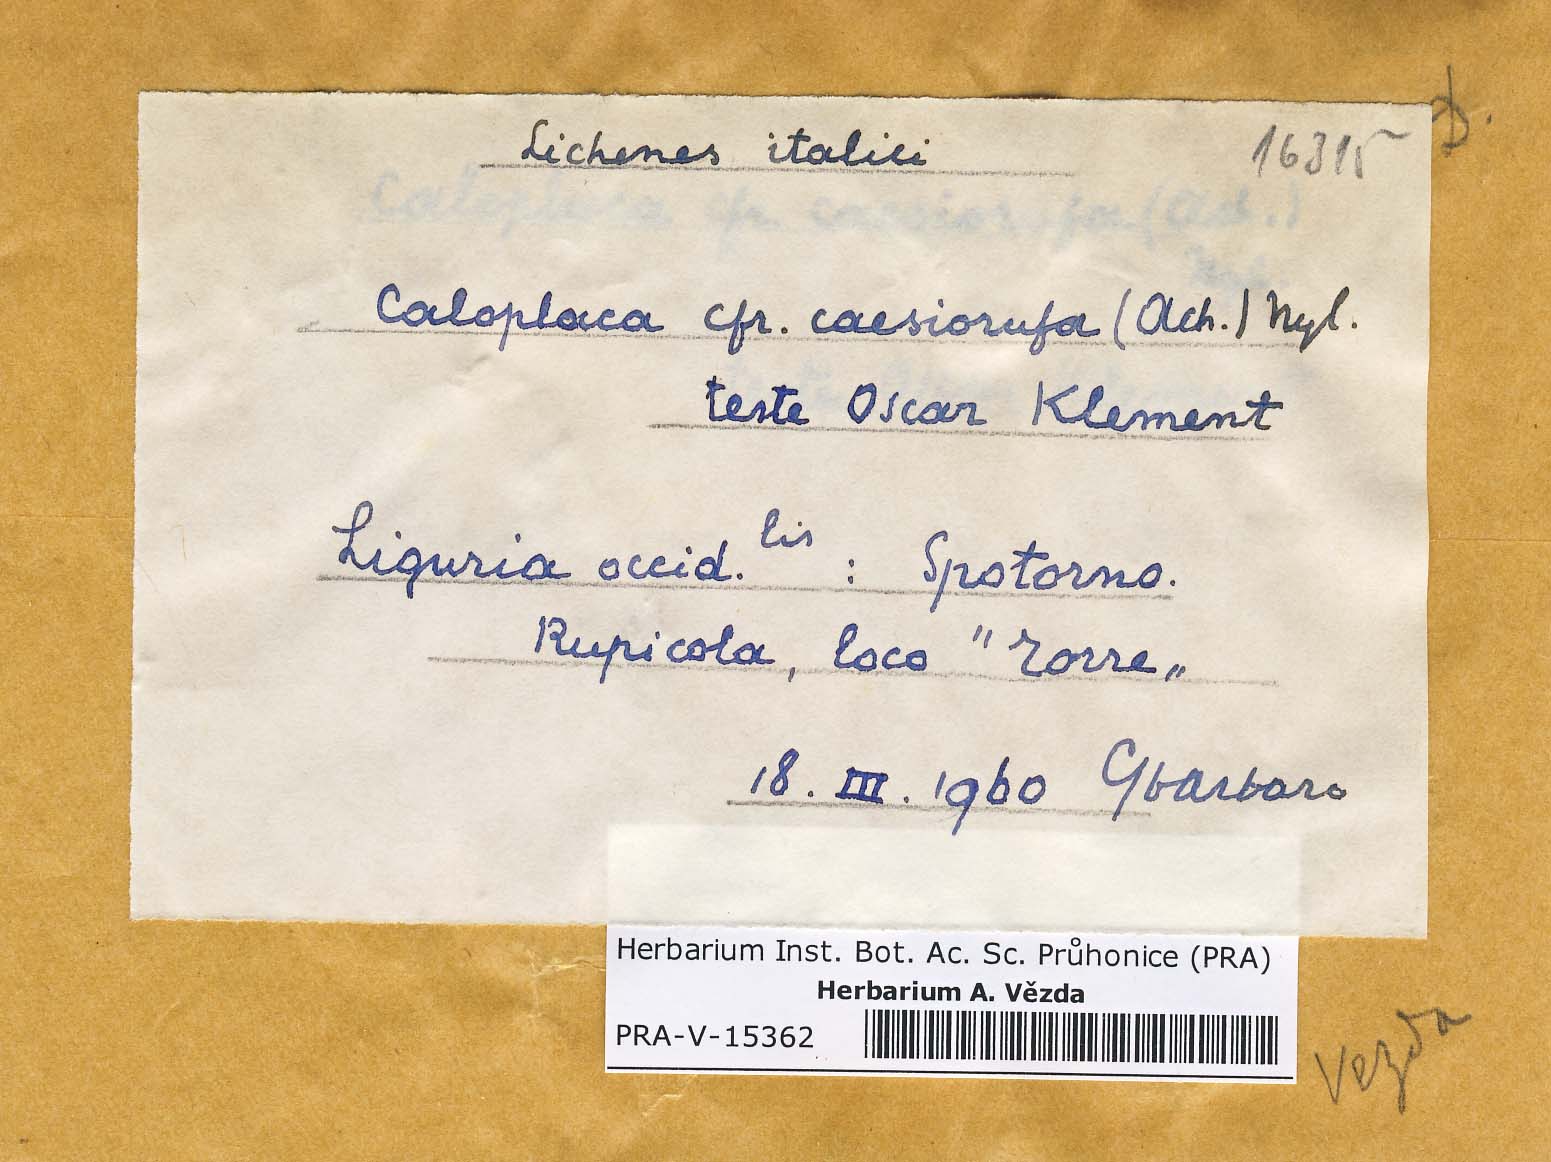 Lichenes italici
16315
D.
Caloplaca cfr. caesiorufa (Ach.) Nyl.
teste Oscar Klement
Liguria occid.lis : Spotorno.
Rupicola, loco "Torre„
18. III. 1960 Gbarbaro
Herbarium Inst. Bot. Ac. Sc. Průhonice (PRA)
Herbarium A. Vězda
PRA-V-15362
Vezda